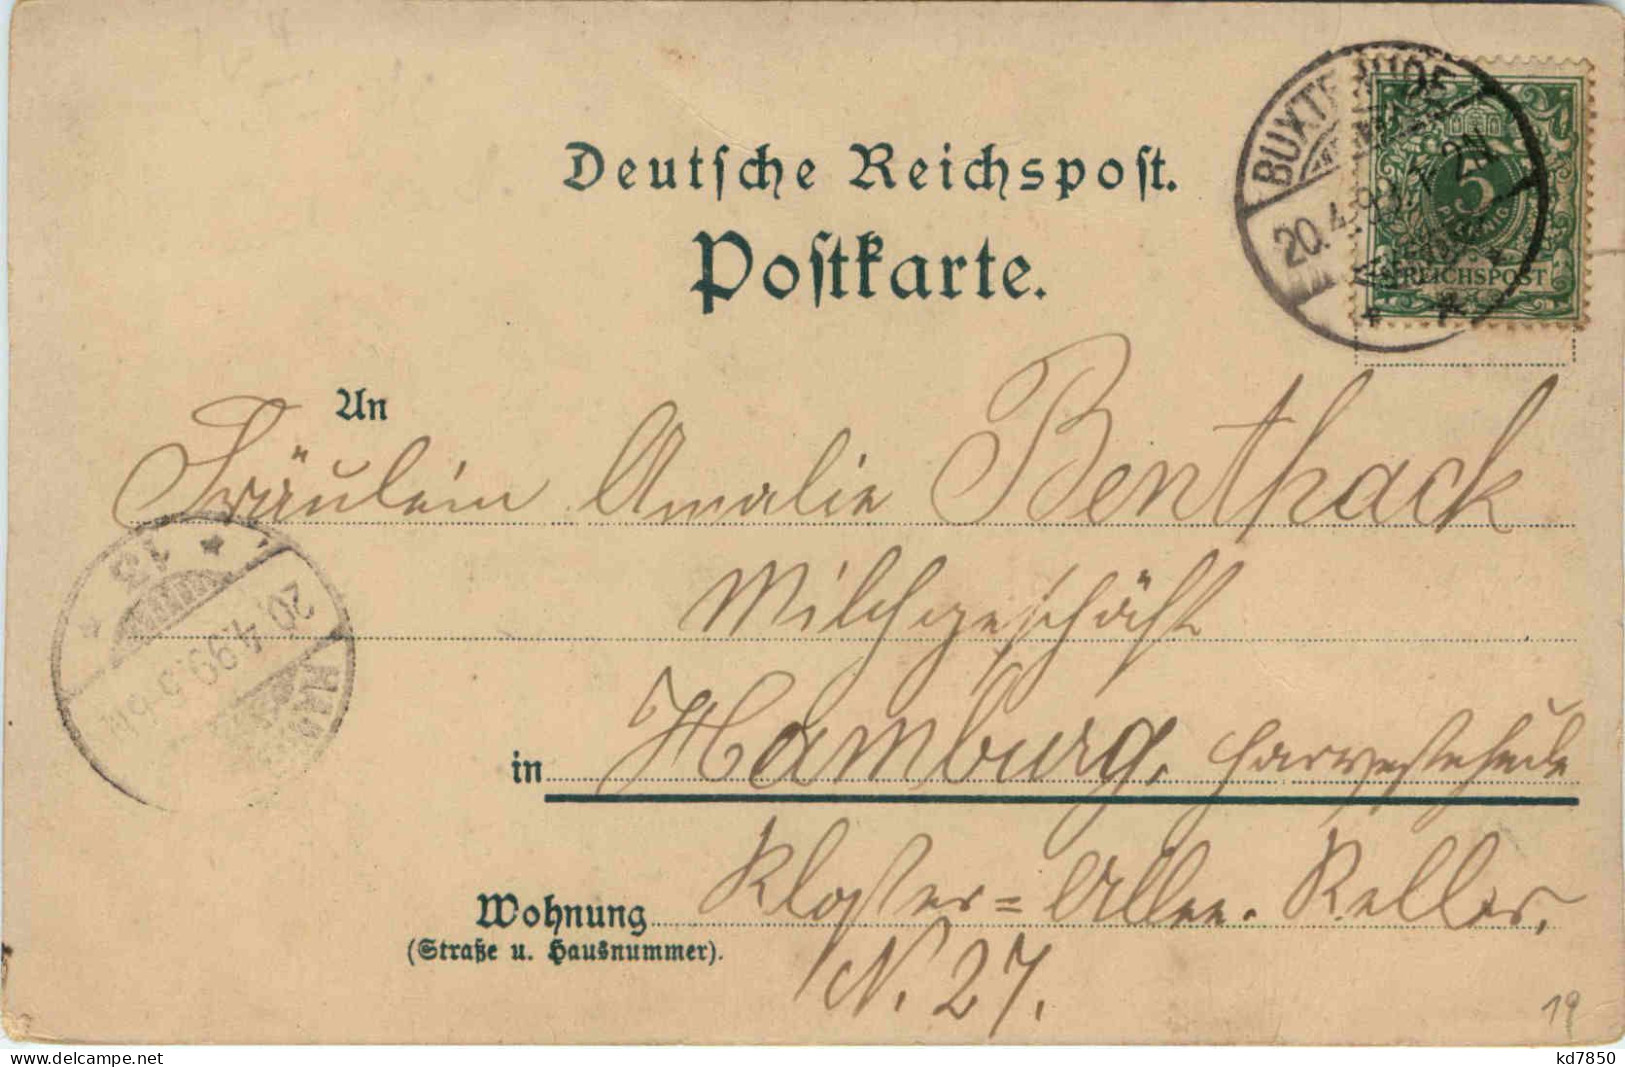 Deutsche Reichspost.
Postkarte.
BUXTEHUDE
20.4.99.
5
PFENNIG
REICHSPOST
An
Fräulein Amalie Benthack
Milchgeschäft
in Hamburg. Harvestehude
Kloster=Allee. Keller,
Wohnung
(Straße u. Hausnummer).
N. 27.
13
20.4.99.5-6N
HAM
19
hippostcard.com
kd7850